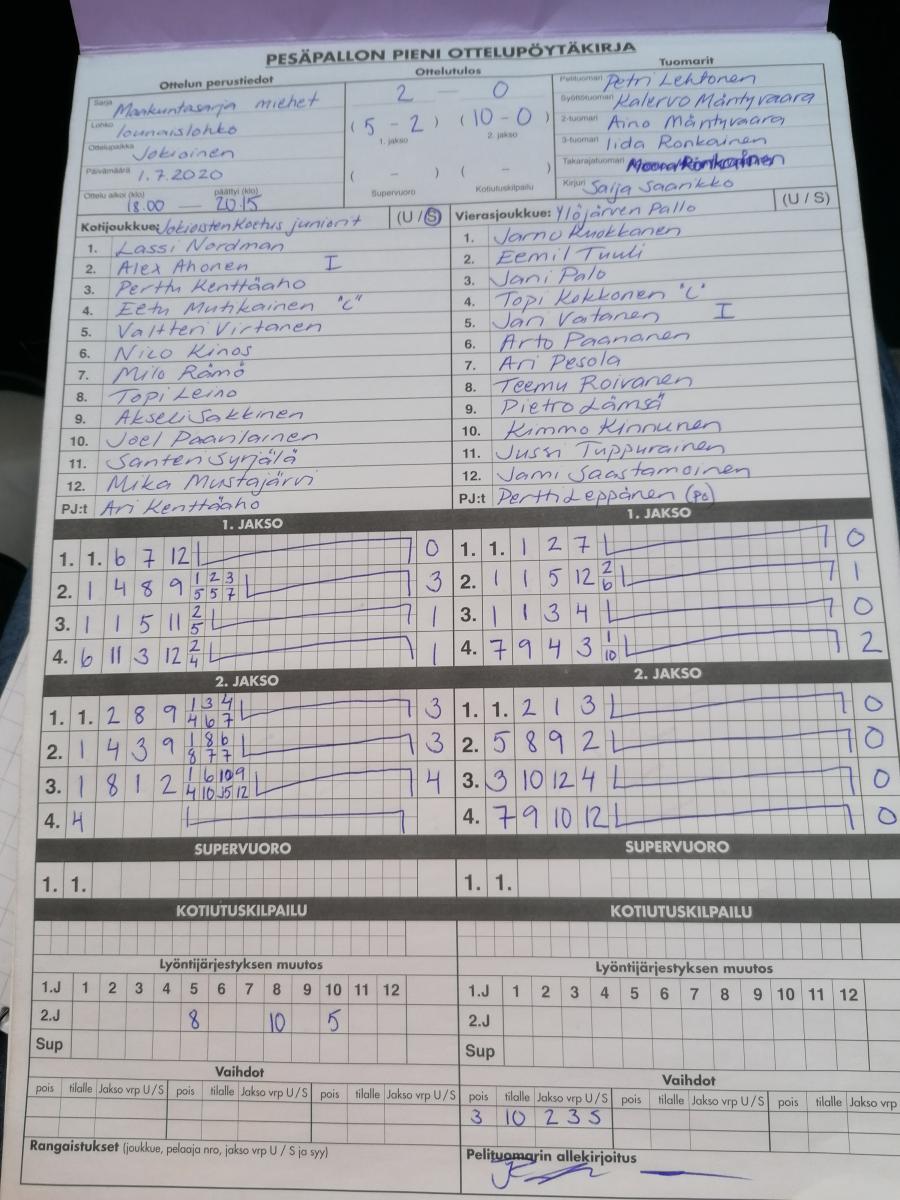 PESÄPALLON PIENI OTTELUPÖYTÄKIRJA
Ottelun perustiedot
Sarja Maakuntasarja miehet
Lohko lounaislohko
Ottelupaikka Jokioinen
Päivämäärä 1.7.2020
Ottelu alkoi (klo) päättyi (klo)
18.00 — 20.15
Ottelutulos
2 — 0
(5 - 2) (10 - 0)
1. jakso 2. jakso
( - ) ( - )
Supervuoro Kotiutuskilpailu
Tuomarit
Pelituomari Petri Lehtonen
Syöttötuomari Kalervo Mäntyvaara
2-tuomari Aino Mäntyvaara
3-tuomari Iida Ronkainen
Takarajatuomari
Kirjuri Saija Saarikko
Kotijoukkue: Jokioisten Koetus juniorit (U / S)
1. Lassi Nordman
2. Alex Ahonen I
3. Perttu Kenttäaho
4. Eetu Mutikainen "C"
5. Valtteri Virtanen
6. Nico Kinos
7. Milo Rämö
8. Topi Leino
9. Akseli Sakkinen
10. Joel Paanlainen
11. Santeri Syrjälä
12. Mika Mustajärvi
PJ:t Ari Kenttäaho
Vierasjoukkue: Ylöjärven Pallo (U / S)
1. Jarno Ruokkanen
2. Eemil Tuuli
3. Jani Palo
4. Topi Kokkonen "C"
5. Jari Vatanen I
6. Arto Paananen
7. Ari Pesola
8. Teemu Roivanen
9. Pietro Lämsä
10. Kimmo Kinnunen
11. Jussi Tuppurainen
12. Jami Saastamoinen
PJ:t Pertti Leppänen (pc)
1. JAKSO
1. 1. 6 7 12 0
2. 1 4 8 9 1 2 3 3
5 5 7
3. 1 1 5 11 2 1
5
4. 6 11 3 12 2 1
4
1. JAKSO
1. 1. 1 2 7 0
2. 1 1 5 12 2 1
6
3. 1 1 3 4 0
4. 7 9 4 3 1 2
10
2. JAKSO
1. 1. 2 8 9 1 3 4 3
4 6 7
2. 1 4 3 9 1 8 6 3
8 7 7
3. 1 8 1 2 1 6 10 9 4
4 10 15 12
4. 4
2. JAKSO
1. 1. 2 1 3 0
2. 5 8 9 2 0
3. 3 10 12 4 0
4. 7 9 10 12 0
SUPERVUORO
1. 1.
SUPERVUORO
1. 1.
KOTIUTUSKILPAILU
KOTIUTUSKILPAILU
Lyöntijärjestyksen muutos
1.J 1 2 3 4 5 6 7 8 9 10 11 12
2.J 8 10 5
Sup
Lyöntijärjestyksen muutos
1.J 1 2 3 4 5 6 7 8 9 10 11 12
2.J
Sup
Vaihdot
pois tilalle Jakso vrp U / S pois tilalle Jakso vrp U / S pois tilalle Jakso vrp U / S
Rangaistukset (joukkue, pelaaja nro, jakso vrp U / S ja syy)
Vaihdot
pois tilalle Jakso vrp U / S pois tilalle Jakso vrp U / S pois tilalle Jakso vrp
3 10 2 3 S
Pelituomarin allekirjoitus